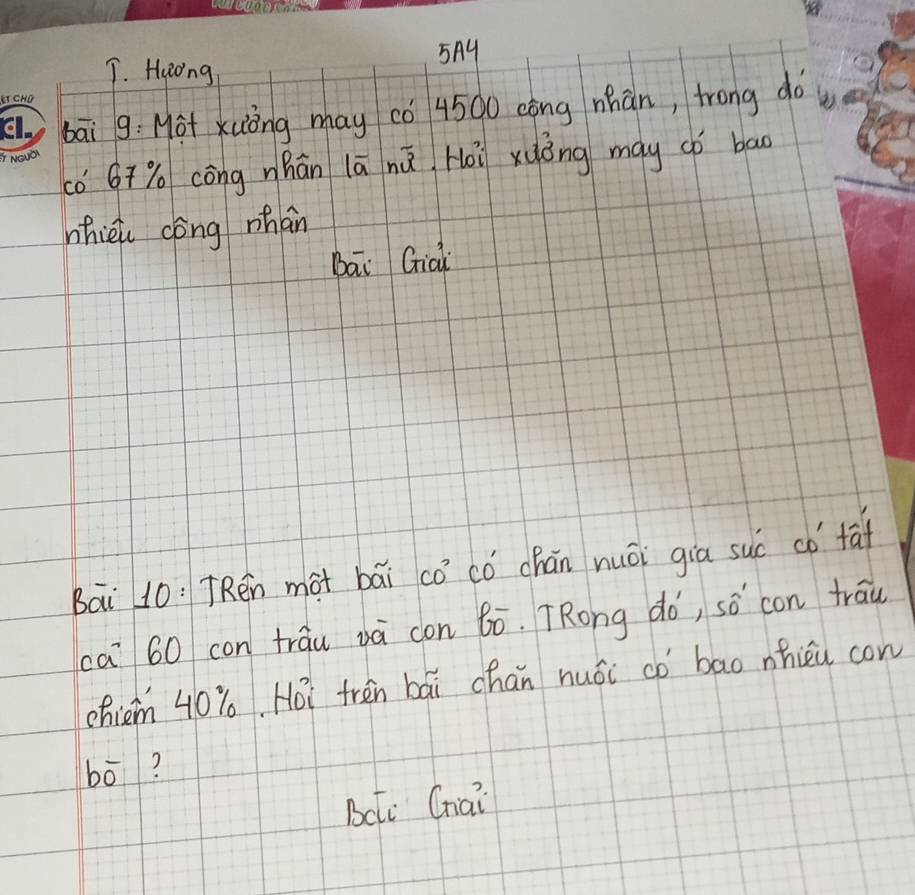 T. Hương 5A4
bài 9: Một xưởng may có 4500 công nhân, trong đó
có 67% công nhân là nữ. Hỏi xưởng may có bao
nhiêu công nhân
Bài Giải
Bài 10: TRên một bãi cỏ có chăn nuôi gia súc có tất
cả 60 con trâu và con bò. TRong đó, số con trâu
chiếm 40%. Hỏi trên bãi chăn nuôi có bao nhiêu con
bò ?
Bài Giải